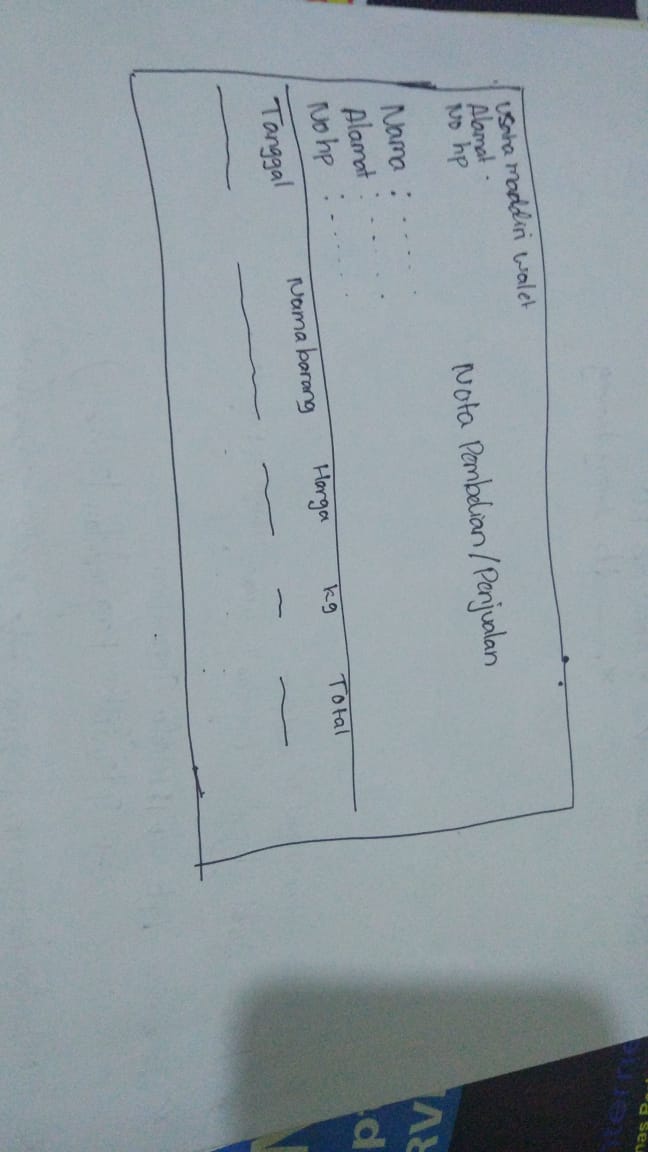 Usaha maddiri walet
Alamat :
No hp
Nota Pembelian/Penjualan
Nama : .....
Alamat : .....
No hp : .....
Tanggal Nama barang Harga kg Total
RV
p